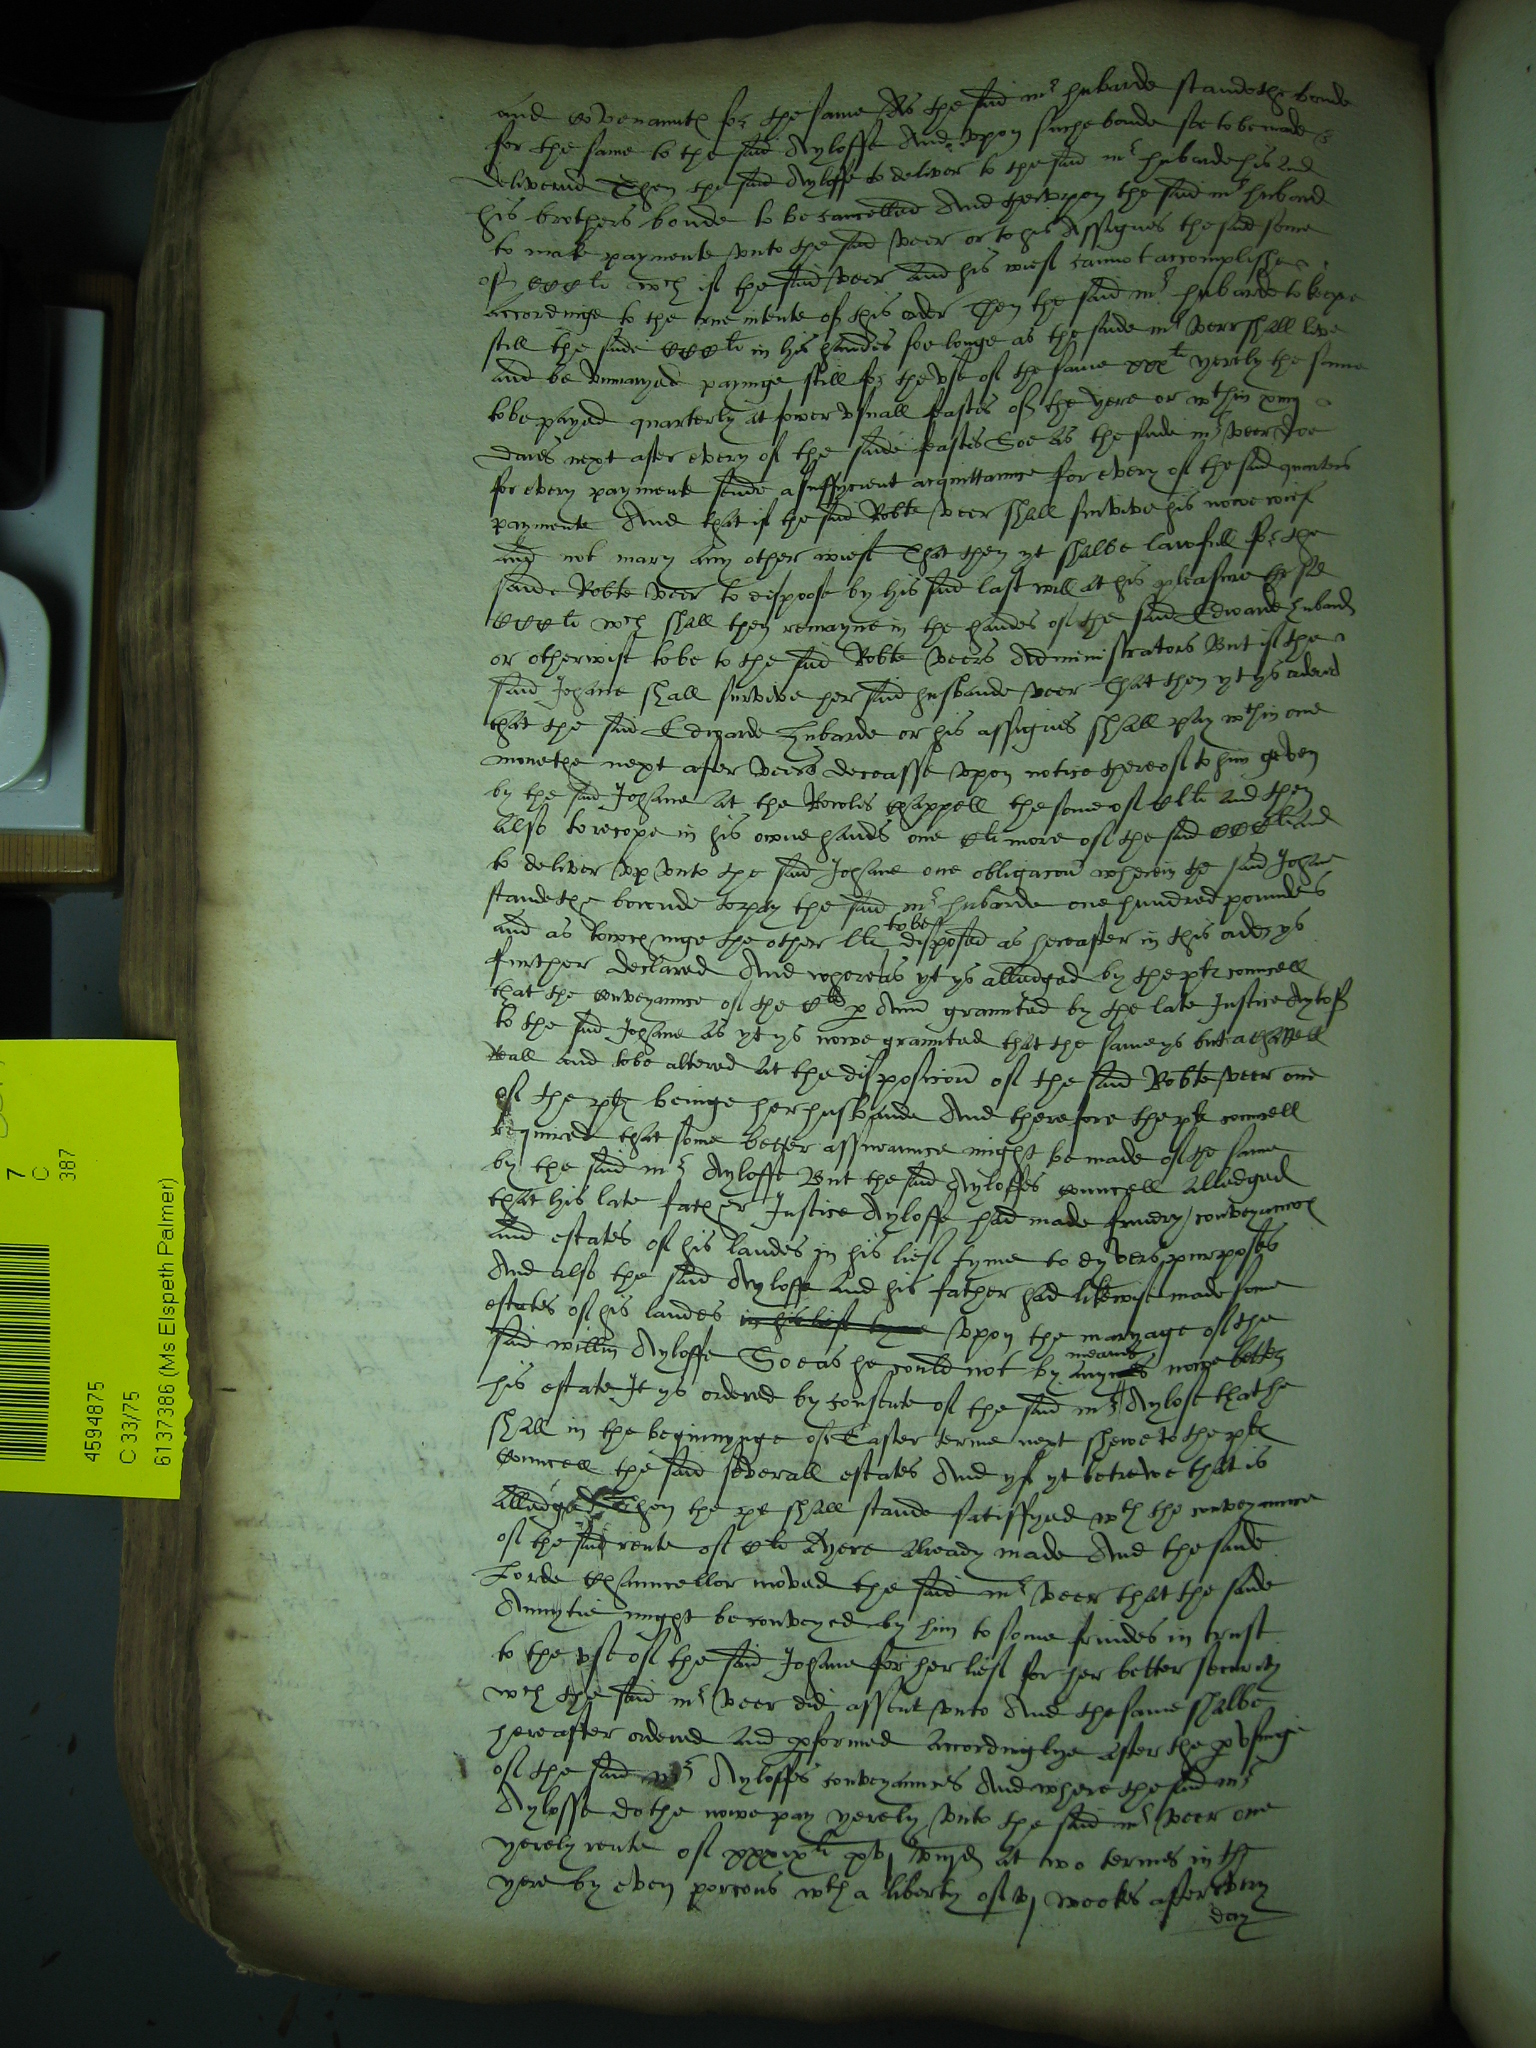 and covenannte for the same As the said mr hubarde standethe bonde
for the same to the said Ayloffe And upon suche bonde soe to be made &
delivered Then the said Ayloffe to deliver to the said mr hubarde his and
his brothers bonde to be cancelled And therupon the said mr hubard
to make paymente unto the said Veer or to his Assignes the said some
of CCCli wch if the said Veer and his wief cannot accomplishe
accordinge to the true intente of this order Then the said mr hubarde to keepe
still the saide CCCli in his handes soe longe as the saide mr Veer shall live
and be unmaryed payinge still for the use of the same xxxli yerely the same
to be payed quarterly at fower usuall feastes of the yere or wthin xiiij
daies next after every of the saide feastes Soe as the saide mr Veer doe
for every paymente sende a suffycient acquittannce for every of the said quarters
paymente And that if the said Robte Veer shall survive his nowe wief
and not mary any other wief That then yt shalbe lawfull for the
saide Robte Veer to dispose by his said last will at his pleasure the said
CCCli wch shall then remayne in the handes of the said Edwarde hubard
or otherwise to be to the said Robte Veers Administrators But if the
said Johane shall survive her said husbande Veer That then yt ys ordered
that the said Edwarde hubarde or his assignes shall pay wthin one
monethe next after Veers deceasse upon notice thereof to him geven
by the said Johane at the Rowles Chappell the some of Clli and then
also to recope in his owne hands one Cli more of the said CCCli And
to deliver up unto the said Johane one obligacon wherein the said Johane
standethe bownde to pay the said mr hubarde one hundred poundes
and as towchinge the other lli to be disposed as hereafter in this order ys
further declared And whereas yt ys alledged by the pltes councell
that the conveyannce of the Cli p Annu graunted by the late Justice Ayloff
to the said Johane as yt ys nowe graunted that the same ys but a chattell
Reall and to be altered at the disposicon of the said Robte Veer one
of the pltes beinge her husbande And therefore the pltes councell
required that some better assurannce might be made of the same
by the said mr Ayloffe But the said Ayloffes councell alledged
that his late father Justice Ayloffe had made sundry conveyannces
and estates of his landes in his lief tyme to dyvers purposes
And also the said Ayloffe and his father had likewise made some
estates of his landes in his lief tyme upon the maryage of the
said Willm Ayloffe Soe as he could not by any means nowe better
his estate It ys ordered by consente of the said mr Aylofe that he
shall in the begynnynge of Easter terme next shewe to the pltes
Councell the said severall estates And yf yt be trewe that is
alledged Then the pltes shall stande satisfyed wth the conveyannce
of the said rente of Cli A yere already made And the saide
Lorde Chauncellor moved the said mr Veer that the saide
Annytie might be conveyed by him to some frindes in trust
to the use of the said Johane for her lief for her better security
wch the said mr Veer did assent unto And the same shalbe
hereafter ordered and pformed accordinglye after the pusinge
of the said mr Ayloffes conveyannces And where the said mr
Ayloffe dothe nowe pay yerely unto the said mr Veer one
yerely rente of xxxixli xvjs viijd at two termes in the
yere by even porcons wth a liberty of vj weekes after every
day
7
C
387
4594875
C 33/75
6137386 (Ms Elspeth Palmer)